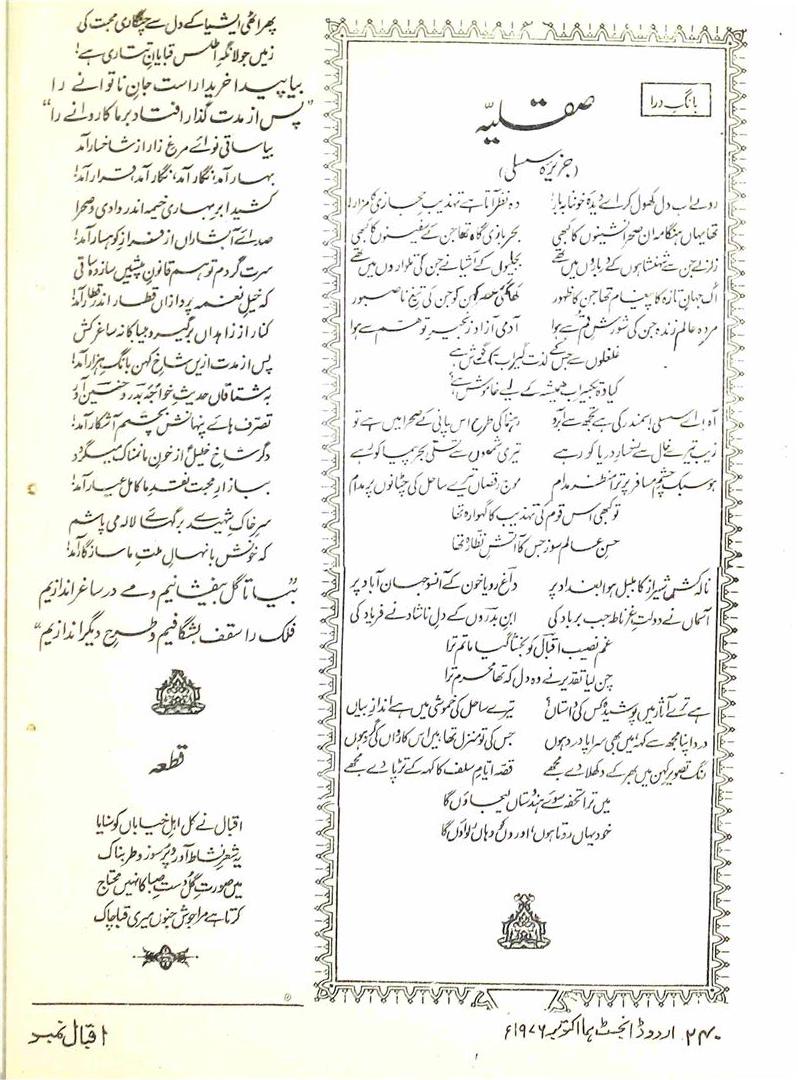 بانگِ درا
صقلیہ
(جزیرہ سسلی)
رو لے اب دل کھول کر اے دیدۂ خونابہ بار! وہ نظر آتا ہے تہذیبِ حجازی کا مزار!
تھا یہاں ہنگامہ ان صحرا نشینوں کا کبھی بحر بازی گاہ تھا جن کے سفینوں کا کبھی
زلزلے جن سے شہنشاہوں کے درباروں میں تھے بجلیوں کے آشیانے جن کی تلواروں میں تھے
اک جہانِ تازہ کا پیغام تھا جن کا ظہور کھا گئی عصرِ کہن کو جن کی تیغِ ناصبور
مردہ عالم زندہ جن کی شورشِ قم سے ہوا آدمی آزاد زنجیرِ توہم سے ہوا
غلغلوں سے جس کے لذت گیر اب تک گوش ہے
کیا وہ تکبیر اب ہمیشہ کے لیے خاموش ہے؟
آہ! اے سسلی! سمندر کی ہے تجھ سے آبرو رہنما کی طرح اس پانی کے صحرا میں ہے تو
زیب تیرے خال سے رخسارِ دریا کو رہے تیری شمعوں سے تسلی بحر پیما کو رہے
ہو سبک چشمِ مسافر پر ترا منظر مدام موج رقصاں تیرے ساحل کی چٹانوں پر مدام
تو کبھی اس قوم کی تہذیب کا گہوارہ تھا
حسنِ عالم سوز جس کا آتشِ نظارہ تھا
نالہ کش شیراز کا بلبل ہوا بغداد پر داغ رویا خون کے آنسو جہان آباد پر
آسماں نے دولتِ غرناطہ جب برباد کی ابنِ بدروں کے دلِ ناشاد نے فریاد کی
غم نصیب اقبال کو بخشا گیا ماتم ترا
چن لیا تقدیر نے وہ دل کہ تھا محرم ترا
ہے ترے آثار میں پوشیدہ کس کی داستاں تیرے ساحل کی خموشی میں ہے اندازِ بیاں
درد اپنا مجھ سے کہہ، میں بھی سراپا درد ہوں جس کی تو منزل تھا، میں اس کارواں کی گرد ہوں
رنگ تصویرِ کہن میں بھر کے دکھلا دے مجھے قصہ ایامِ سلف کا کہہ کے تڑپا دے مجھے
میں ترا تحفہ سوئے ہندوستاں لے جاؤں گا
خود یہاں روتا ہوں، اوروں کو وہاں رلواؤں گا
پھر اٹھی ایشیا کے دل سے چنگاری محبت کی
زمیں جولانگہِ اطلس قبایانِ تتاری ہے!
بیا پیدا خریدار است جانِ ناتوانے را
"پس از مدت گذار افتاد بر ما کاروانے را"
بیا ساقی نوائے مرغِ زار از شاخسار آمد
بہار آمد، نگار آمد، نگار آمد، قرار آمد!
کشید ابرِ بہاری خیمہ اندر وادی و صحرا
صدائے آبشاراں از فرازِ کوہسار آمد!
سرت گردم تو ہم قانونِ پیشیں ساز دہ ساقی
کہ خیلِ نغمہ پردازاں قطار اندر قطار آمد!
کنار از زاہداں برگیر و بیباکانہ ساغر کش
پس از مدت ازیں شاخِ کہن بانگِ ہزار آمد!
بہ مشتاقاں حدیثِ خواجۂ بدر و حنین آور
تصرف ہائے پنہانش بچشم آشکار آمد!
دگر شاخِ خلیل از خونِ ما نمناک میگردد
ببازارِ محبت نقدِ ما کامل عیار آمد!
سرِ خاکِ شہیدے برگہائے لالہ می پاشم
کہ خونش با نہالِ ملتِ ما سازگار آمد!
"بیا تا گل بیفشانیم و مے در ساغر اندازیم
فلک را سقف بشگافیم و طرحِ دیگر اندازیم"
قطعہ
اقبال نے کل اہلِ خیاباں کو سنایا
یہ شعرِ نشاط آور و پرسوز و طربناک
میں صورتِ گل دستِ صبا کا نہیں محتاج
کرتا ہے مرا جوشِ جنوں میری قبا چاک
۲۴۰ اردو ڈائجسٹ ہما اکتوبر ۱۹۷۶ء
اقبال نمبر